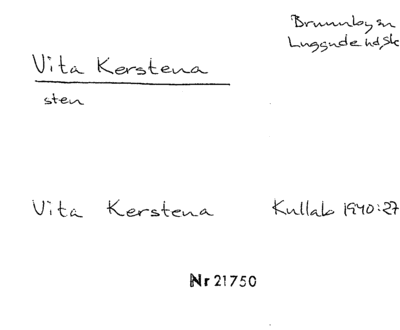 Brunnby sn
Luggude hd Sk
Vita Kerstena
sten
Vita Kerstena Kullab 1940:27
Nr 21750